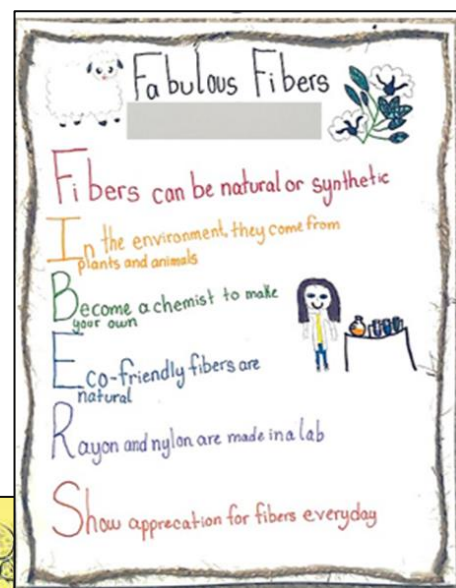 Fabulous Fibers
Fibers can be natural or synthetic
In the environment, they come from
plants and animals
Become a chemist to make
your own
Eco-friendly fibers are
natural
Rayon and nylon are made in a lab
Show apprecation for fibers everyday